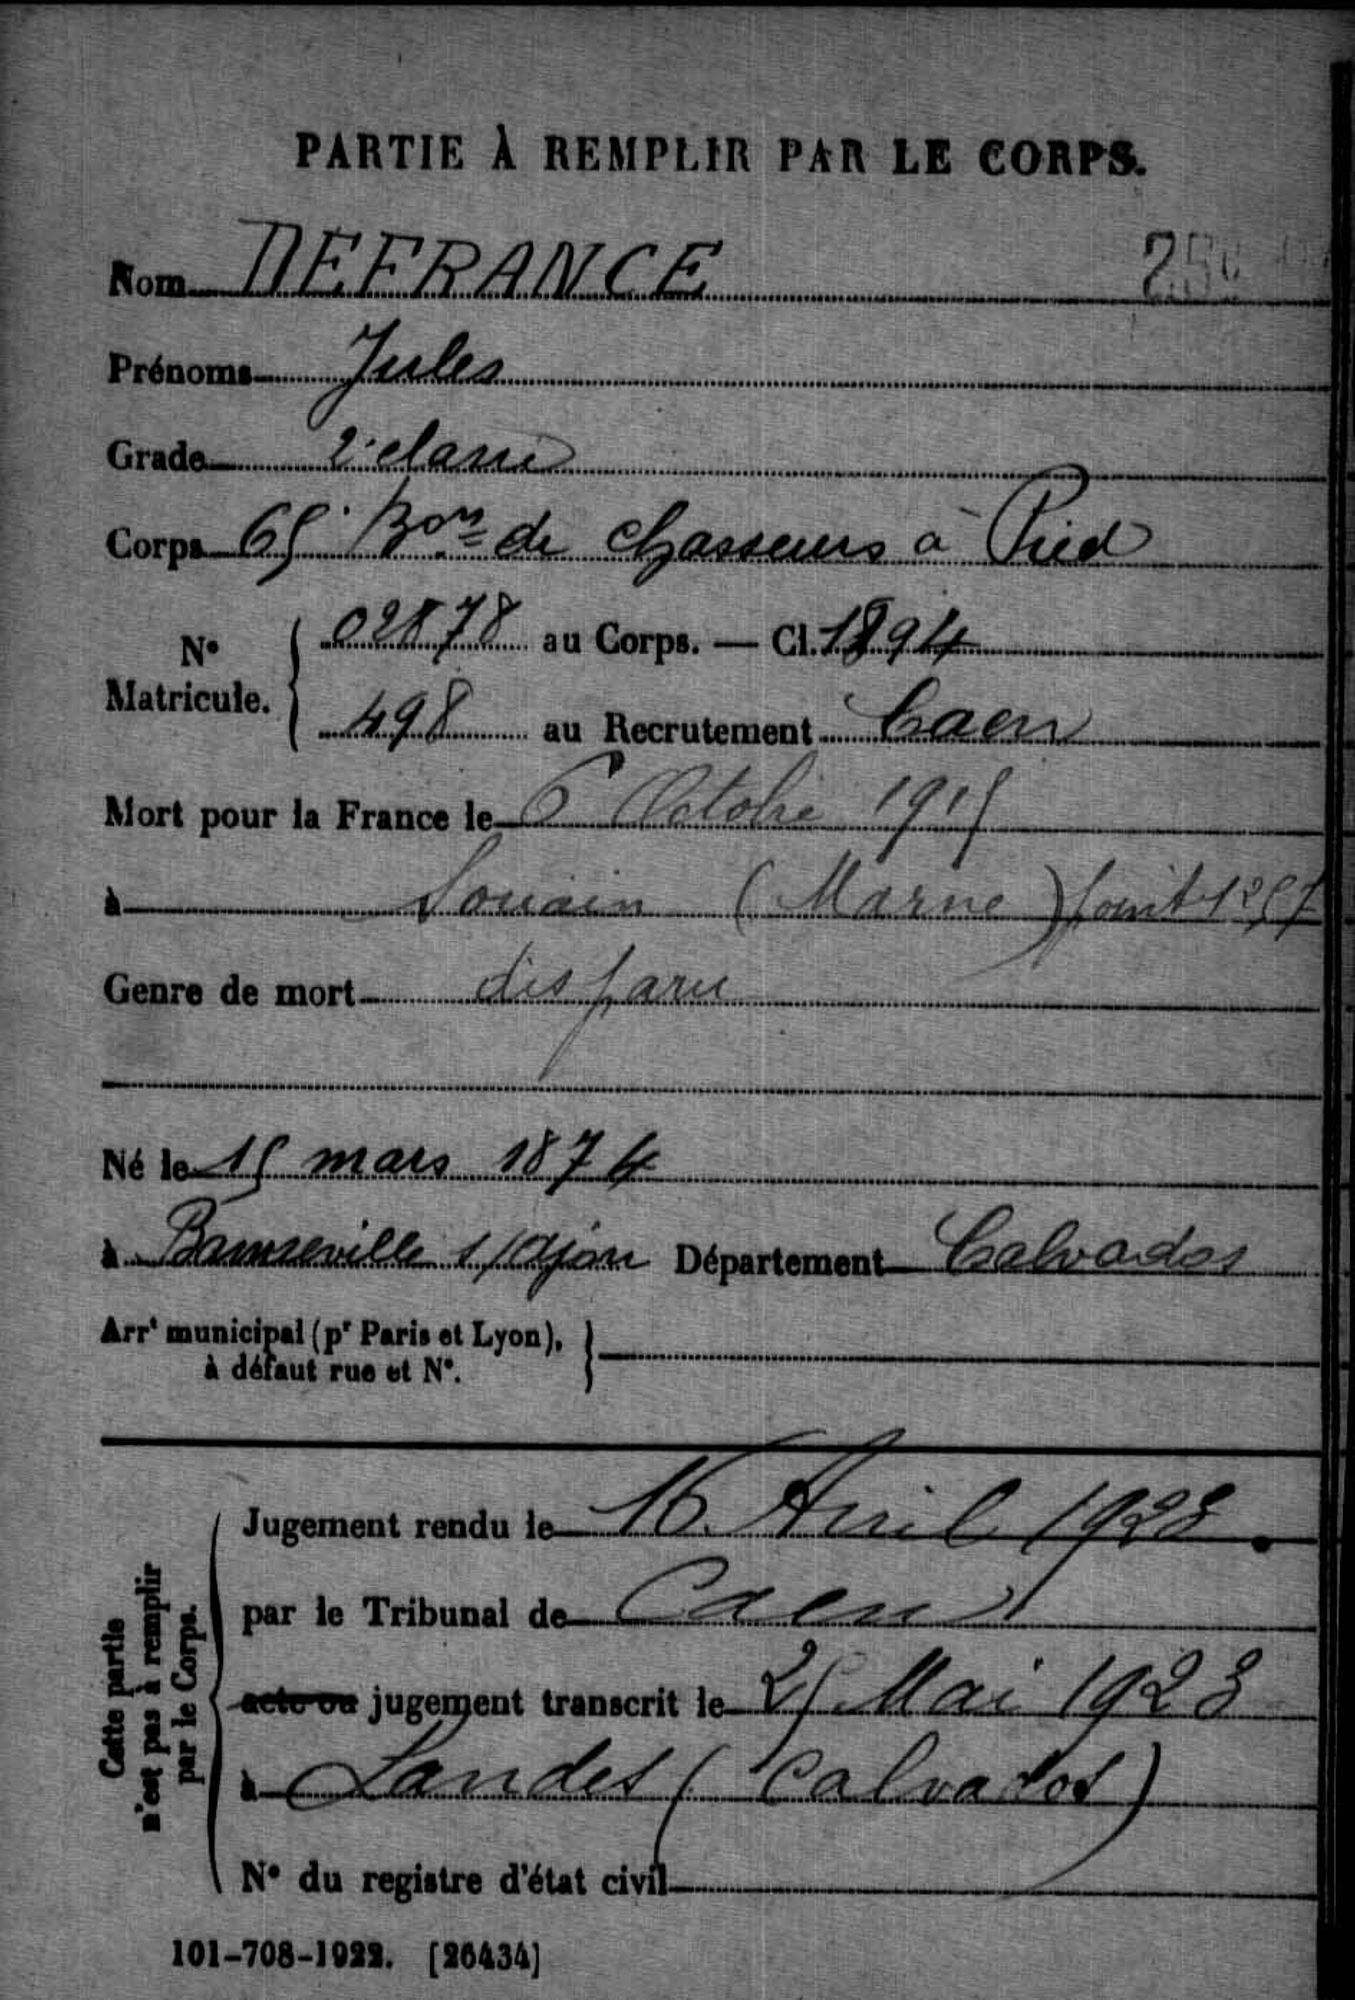 PARTIE À REMPLIR PAR LE CORPS.
Nom DEFRANCE
Prénoms Jules
Grade 2e classe
Corps 65e Bon de chasseurs à Pied
No Matricule. 02878 au Corps. — Cl. 1894
498 au Recrutement Caen
Mort pour la France le 6 Octobre 1915
à Souain (Marne) point
Genre de mort disparu
Né le 15 mars 1874
à s/ajon Département Calvados
Arrt municipal (pr Paris et Lyon),
à défaut rue et No.
Cette partie
n'est pas à remplir
par le Corps.
Jugement rendu le 16 Avril 1923.
par le Tribunal de Caen
acte ou jugement transcrit le 25 Mai 1923
à Landes (Calvados)
No du registre d'état civil
101-708-1922. [26434]